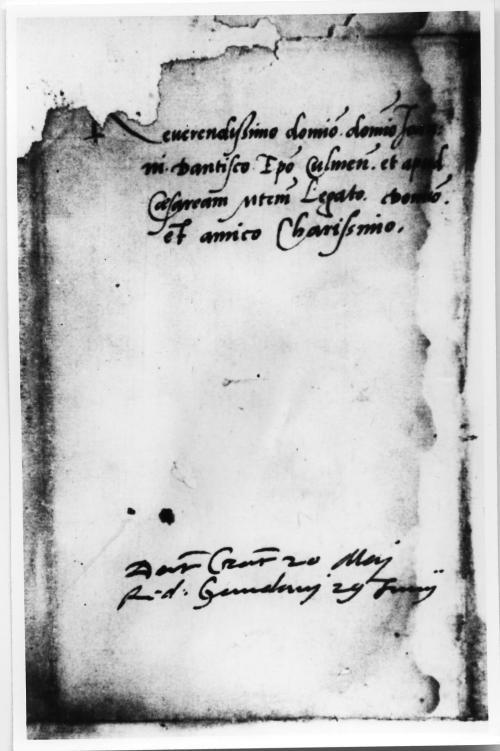 Reverendissimo domiō. domiō Joan
ni. Dantisco Epō Culmeñ. et apud
Cæsaream Mtem̄ Legato. domiō.
et amico Charissimo.
Dat Crac 20 Maij
R-d: Gandavj 29 Junij